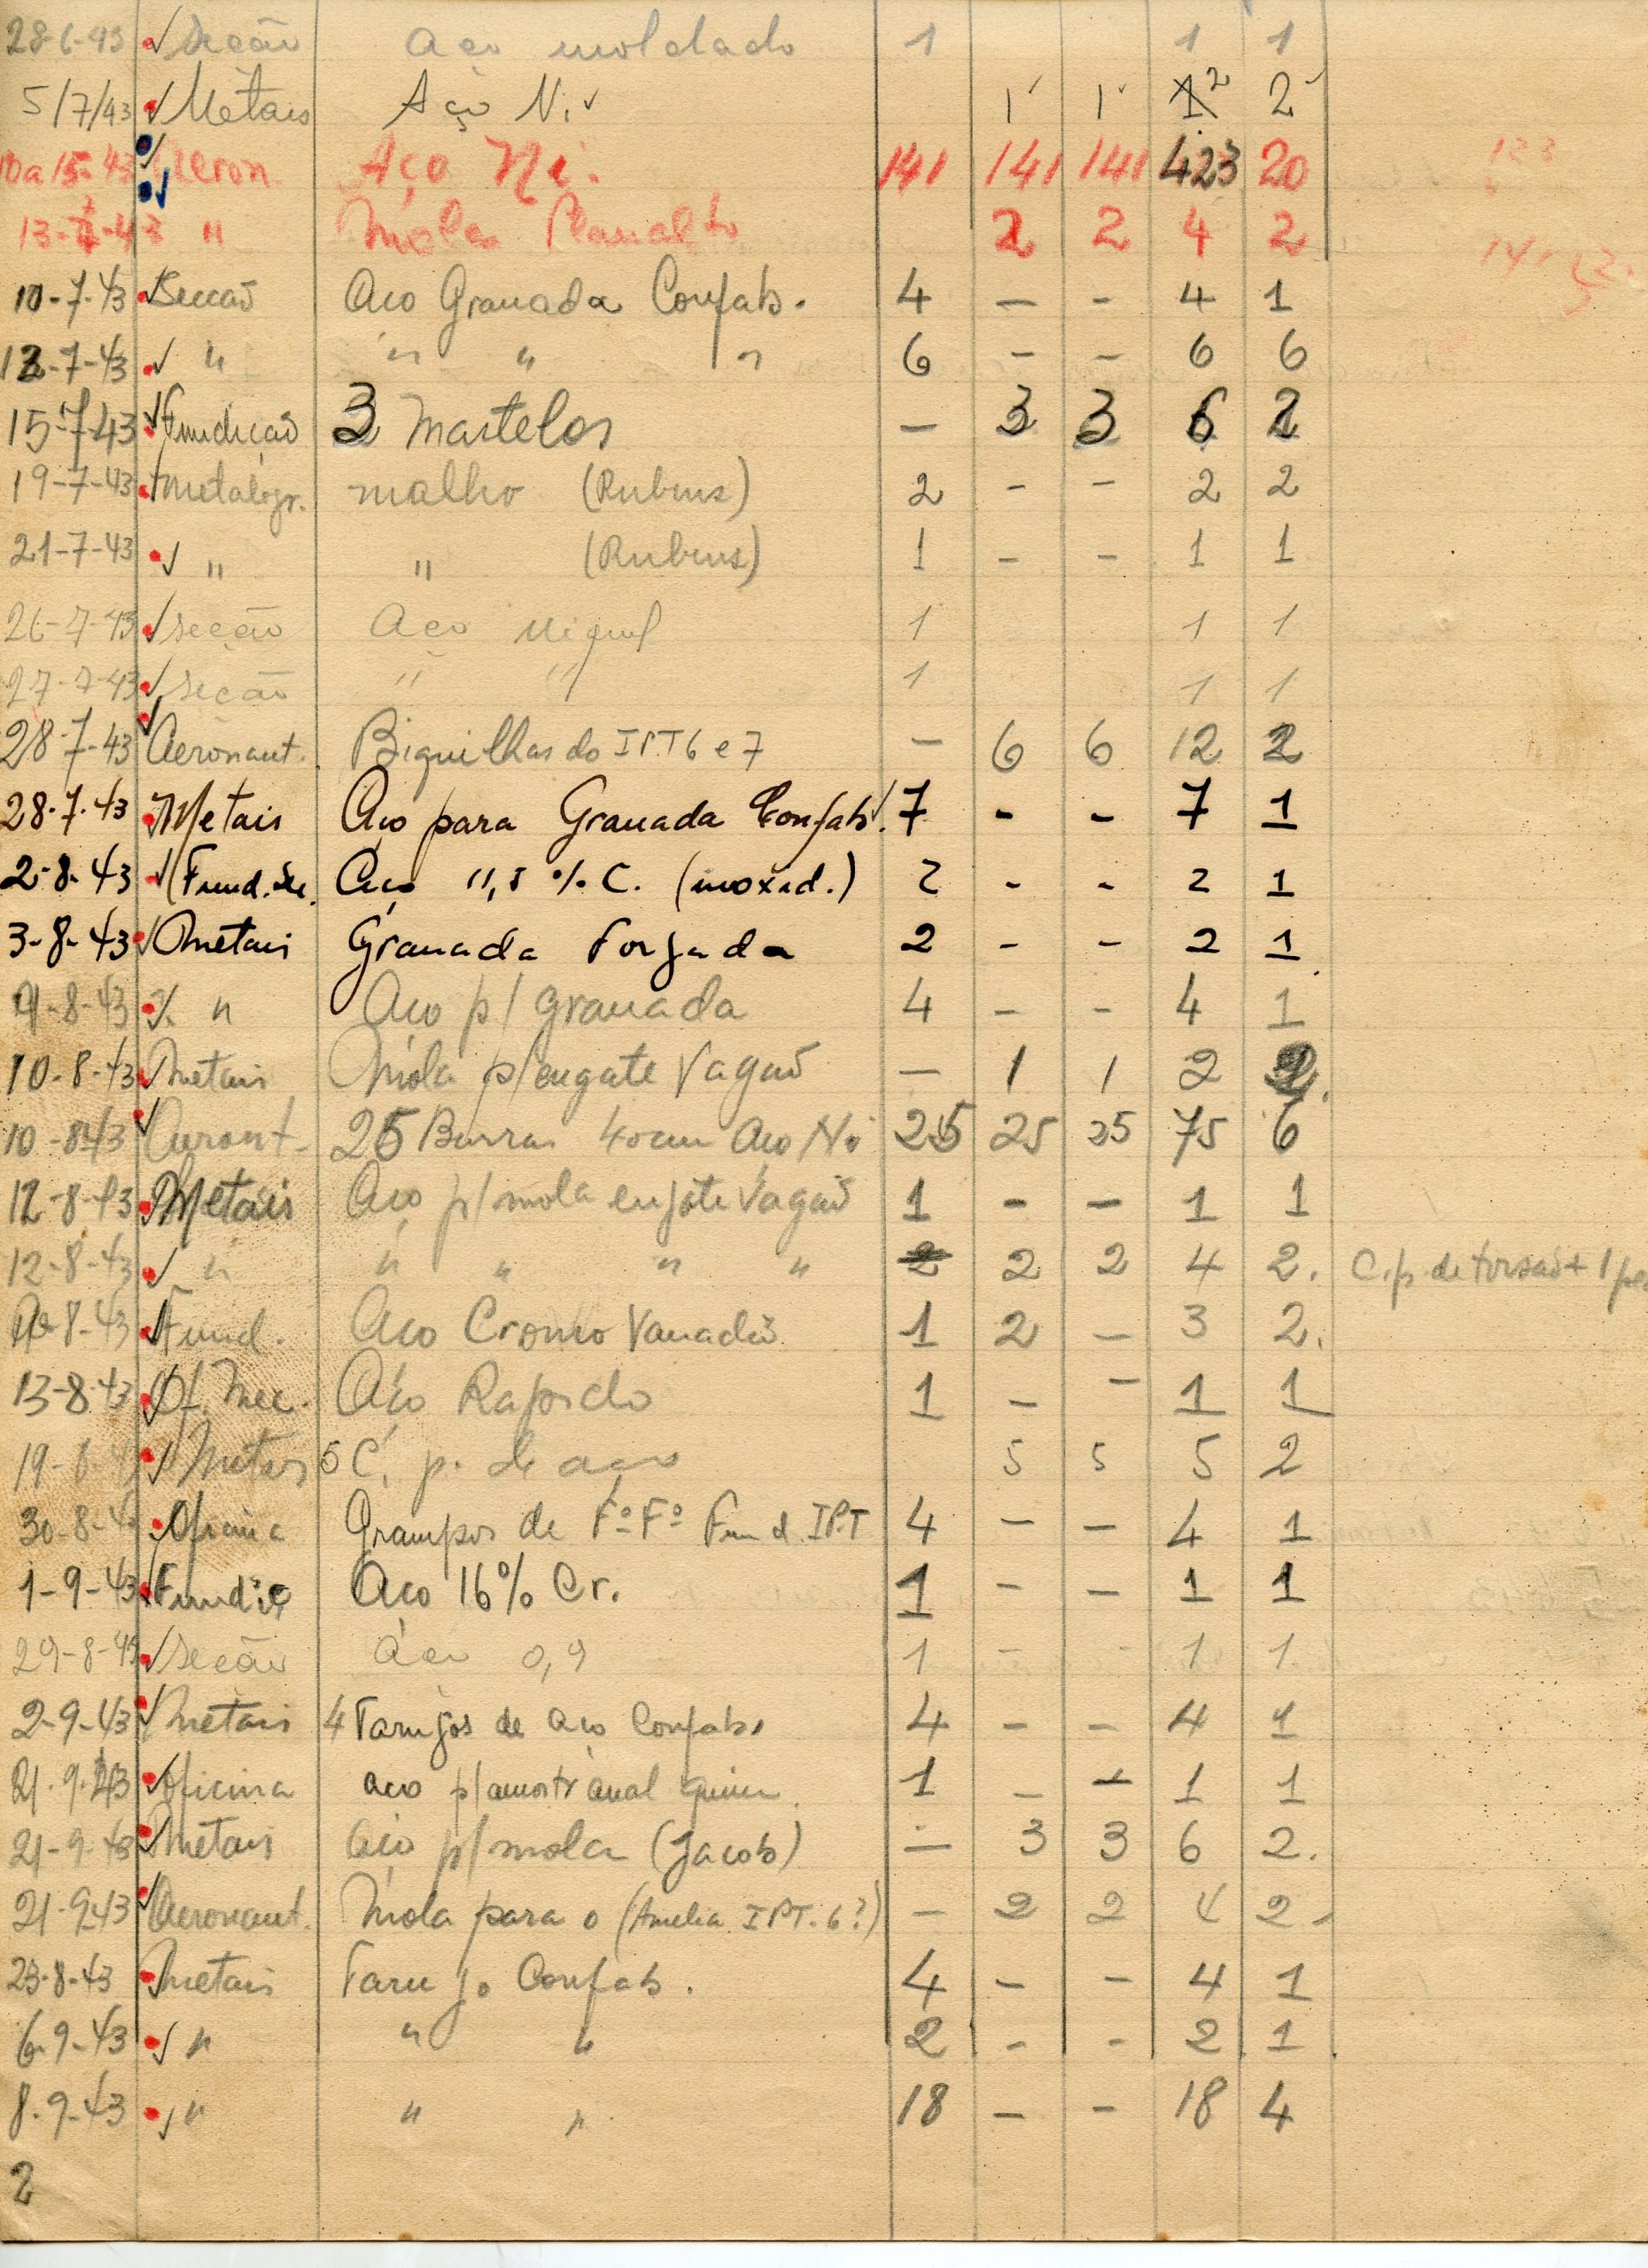 28-6-43 Secção Aço moldado 1 1 1
5/7/43 Metais Aço Ni 1 1 1 2 2
10 a 15-7-43 Aeron Aço Ni. 141 141 141 423 20
13-7-43 " Molas Planalto 2 2 4 2
10-7-43 Secção Aço Granada Confab. 4 — - 4 1
12-7-43 " " " " 6 - - 6 6
15-7-43 Fundição 3 Martelos — 3 3 6 2
19-7-43 Metalogr. malho (Rubens) 2 - - 2 2
21-7-43 " " (Rubens) 1 - - 1 1
26-7-43 Secção Aço Niquel 1 1 1
27-7-43 Secção " " 1 1 1
28-7-43 Aeronaut. Biquilhas do IPT 6 e 7 — 6 6 12 2
28-7-43 Metais Aço para Granada Confab. 7 - - 7 1
2-8-43 (Fund. Aço 11,5 % C. (inoxid.) 2 - - 2 1
3-8-43 Metais Granada Forjada 2 - - 2 1
9-8-43 " Aço p/ granada 4 - - 4 1
10-8-43 Metais Mola p/ engate Vagão — 1 1 2 2
10-8-43 Aeront. 25 Barras 40cm Aço Ni 25 25 25 75 6
12-8-43 Metais Aço p/ mola engate Vagão 1 - - 1 1
12-8-43 " " " " " 2 2 2 4 2. C.p. de torsão + 1
8-43 Fund. Aço Cromo Vanadio 1 2 — 3 2.
13-8-43 Of. Mec. Aço Rapido 1 - - 1 1
19-8-43 Metais 5 C. p. de aço 5 5 5 2
30-8-43 Oficina Grampos de Fº Fº Fund. IPT 4 - - 4 1
1-9-43 Fundiç Aço 16% Cr. 1 - - 1 1
29-8-43 Secção Aço 0,9 1 - - 1 1
2-9-43 Metais 4 Tarugos de aço Confab. 4 - - 4 1
21-9-43 Oficina aço p/ amostr anal quim. 1 - - 1 1
21-9-43 Metais Aço p/ mola (Jacob) — 3 3 6 2.
21-9-43 Aeronaut. Mola para o (Amelia IPT. 6?) — 2 2 4 2.
23-8-43 Metais Tarugo Confab. 4 - - 4 1
6-9-43 " " " 2 - - 2 1
8-9-43 " " " 18 - - 18 4
2